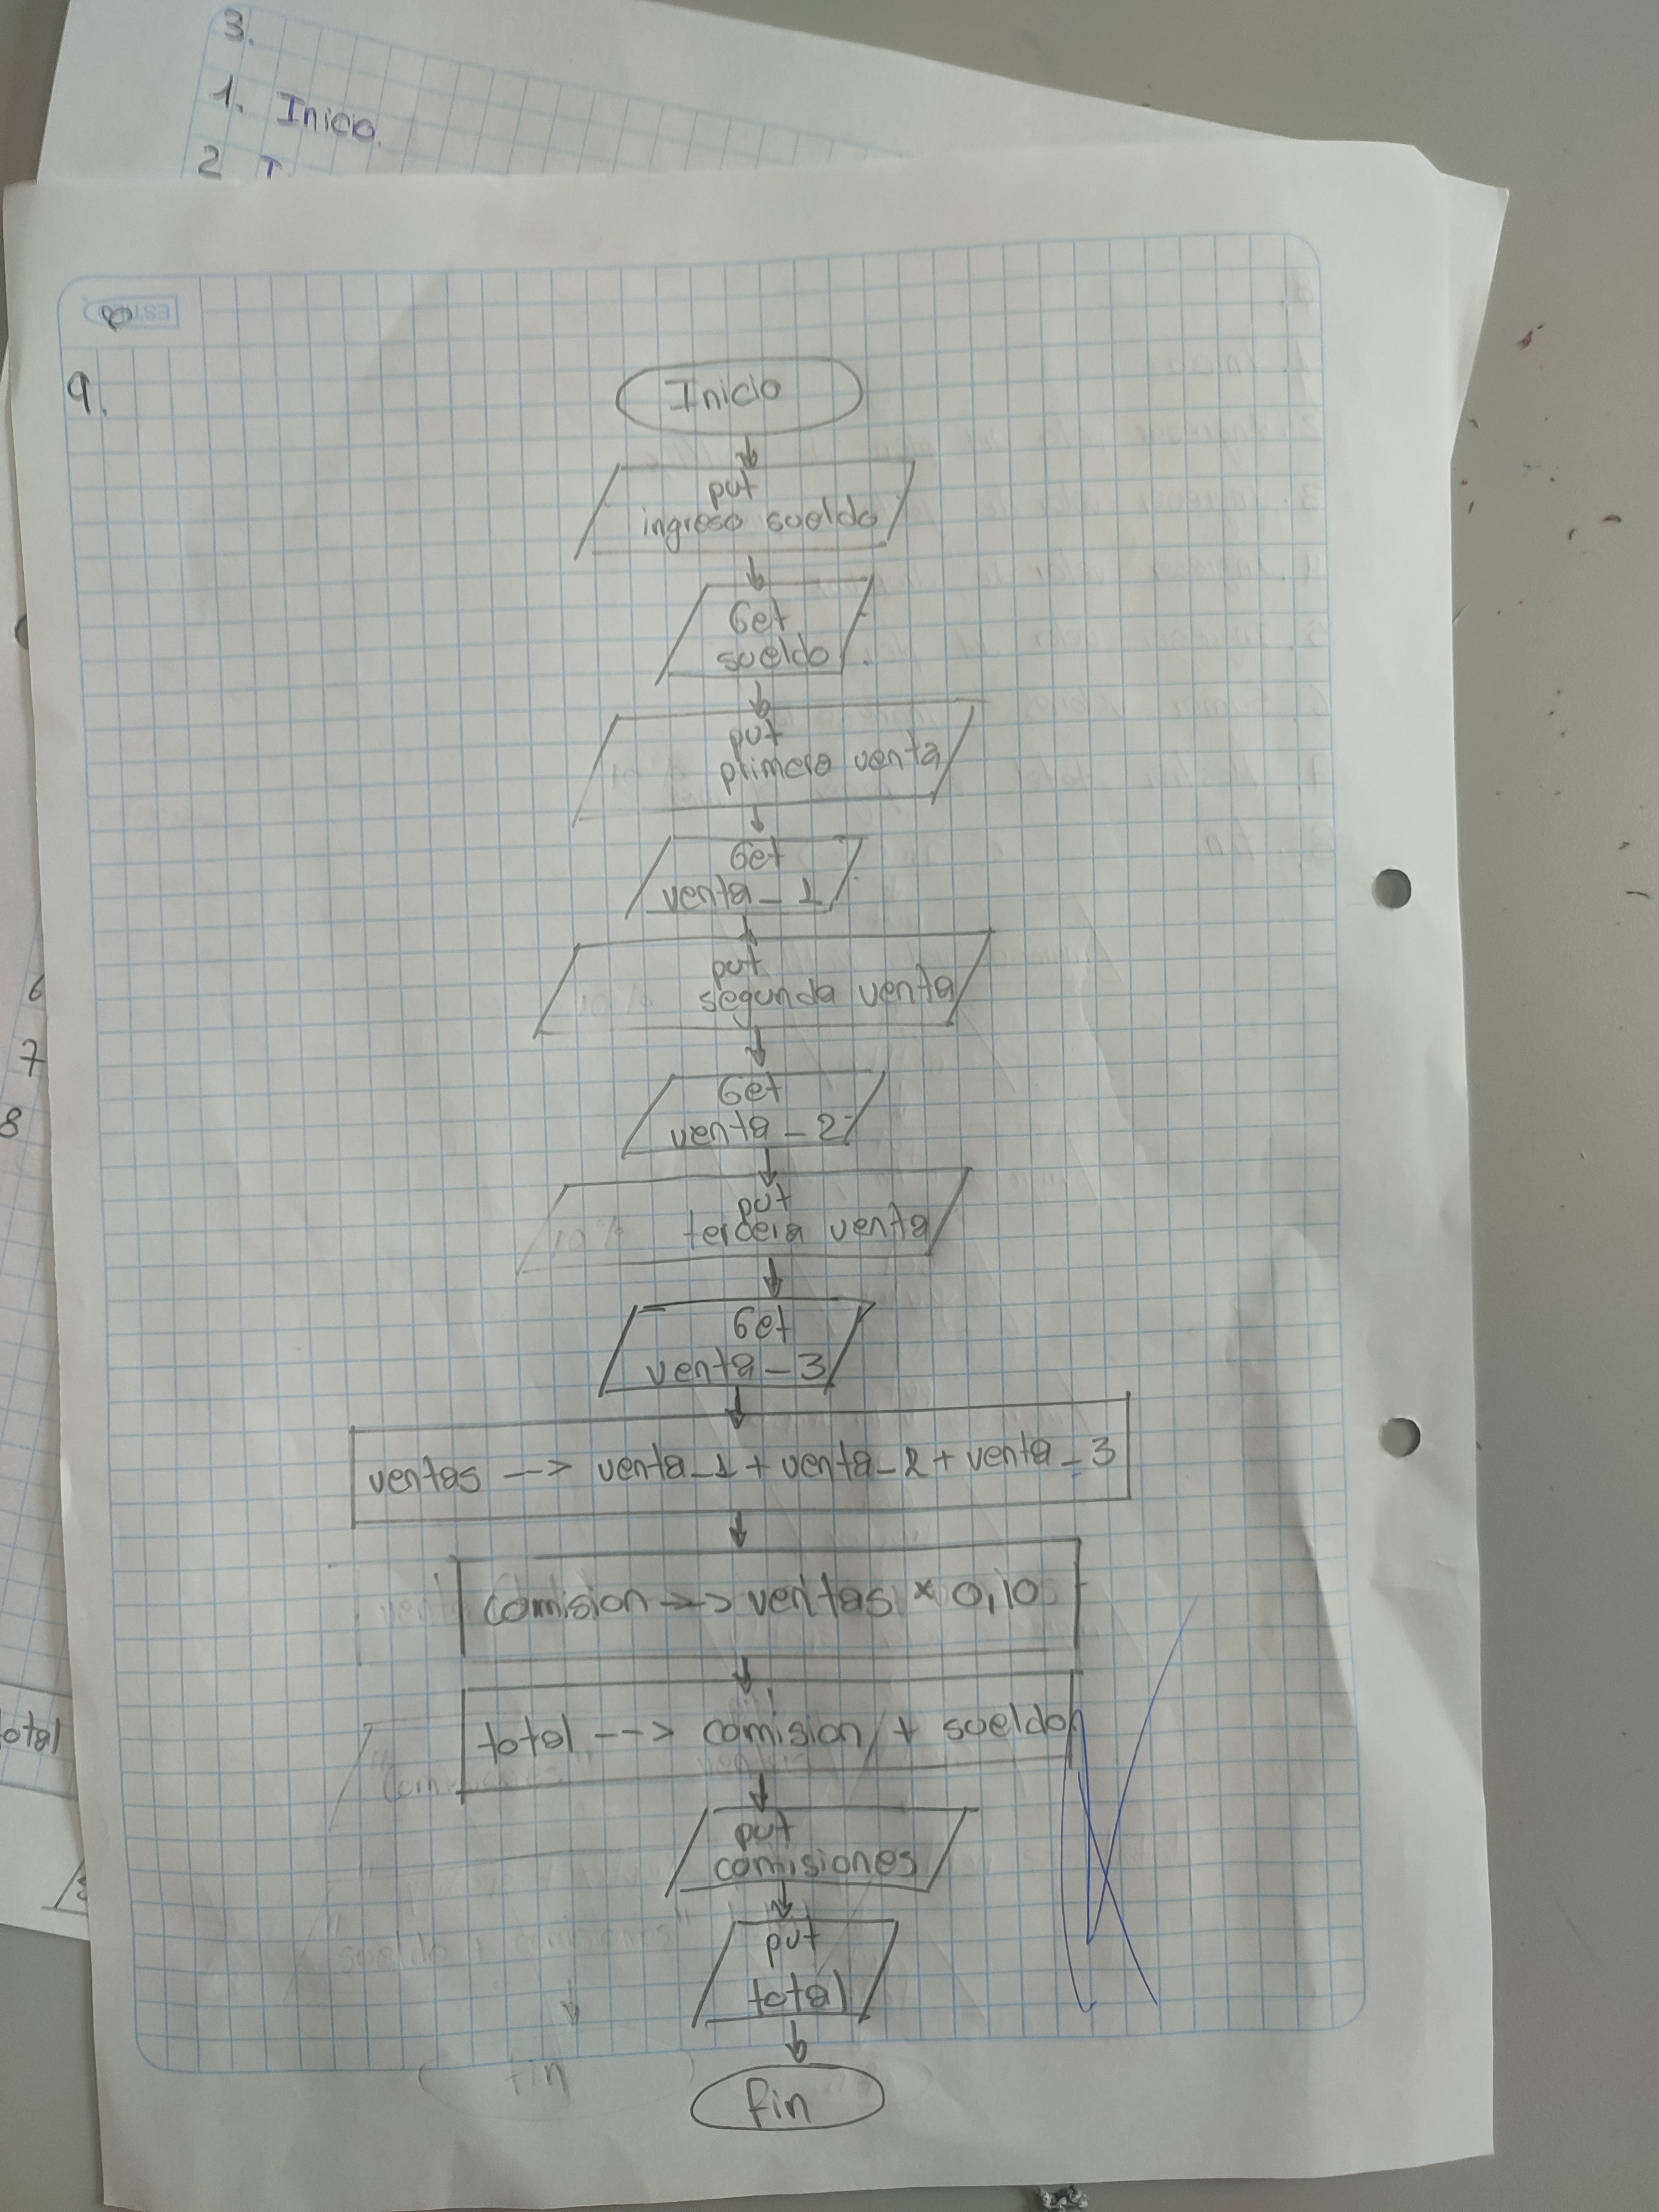 3.
1. Inicio.
2
9.
Inicio
put
ingreso sueldo
Get
sueldo
put
primera venta
Get
venta_1
put
segunda venta
Get
venta_2
put
tercera venta
Get
venta_3
ventas --> venta_1 + venta_2 + venta_3
comision --> ventas * 0,10
total --> comision + sueldo
put
comisiones
put
total
fin
6
7
8
otal